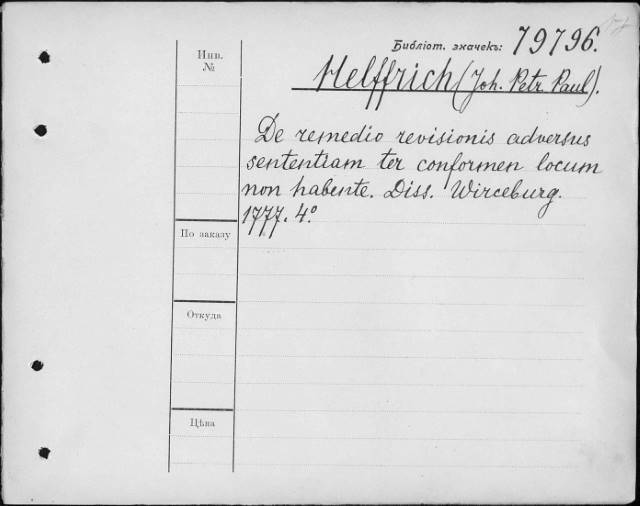 Библіот. значекъ: 79796.
Инв. №
Helffrich (Joh. Petr. Paul).
De remedio revisionis adversus
sententiam ter conformen locum
non habente. Diss. Wirceburg.
1777. 4º
По заказу
Откуда
Цѣна